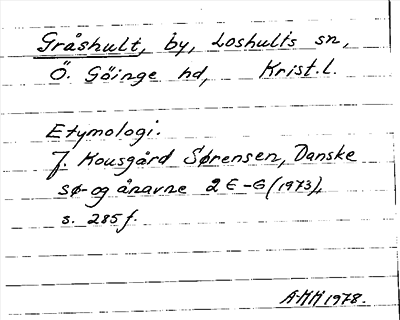 Gråshult, by, Loshults sn,
Ö. Göinge hd, Krist.l.
Etymologi.
J. Kousgård Sørensen, Danske
sø- og ånavne 2 E-G (1973),
s. 285 f.
AMM 1978.